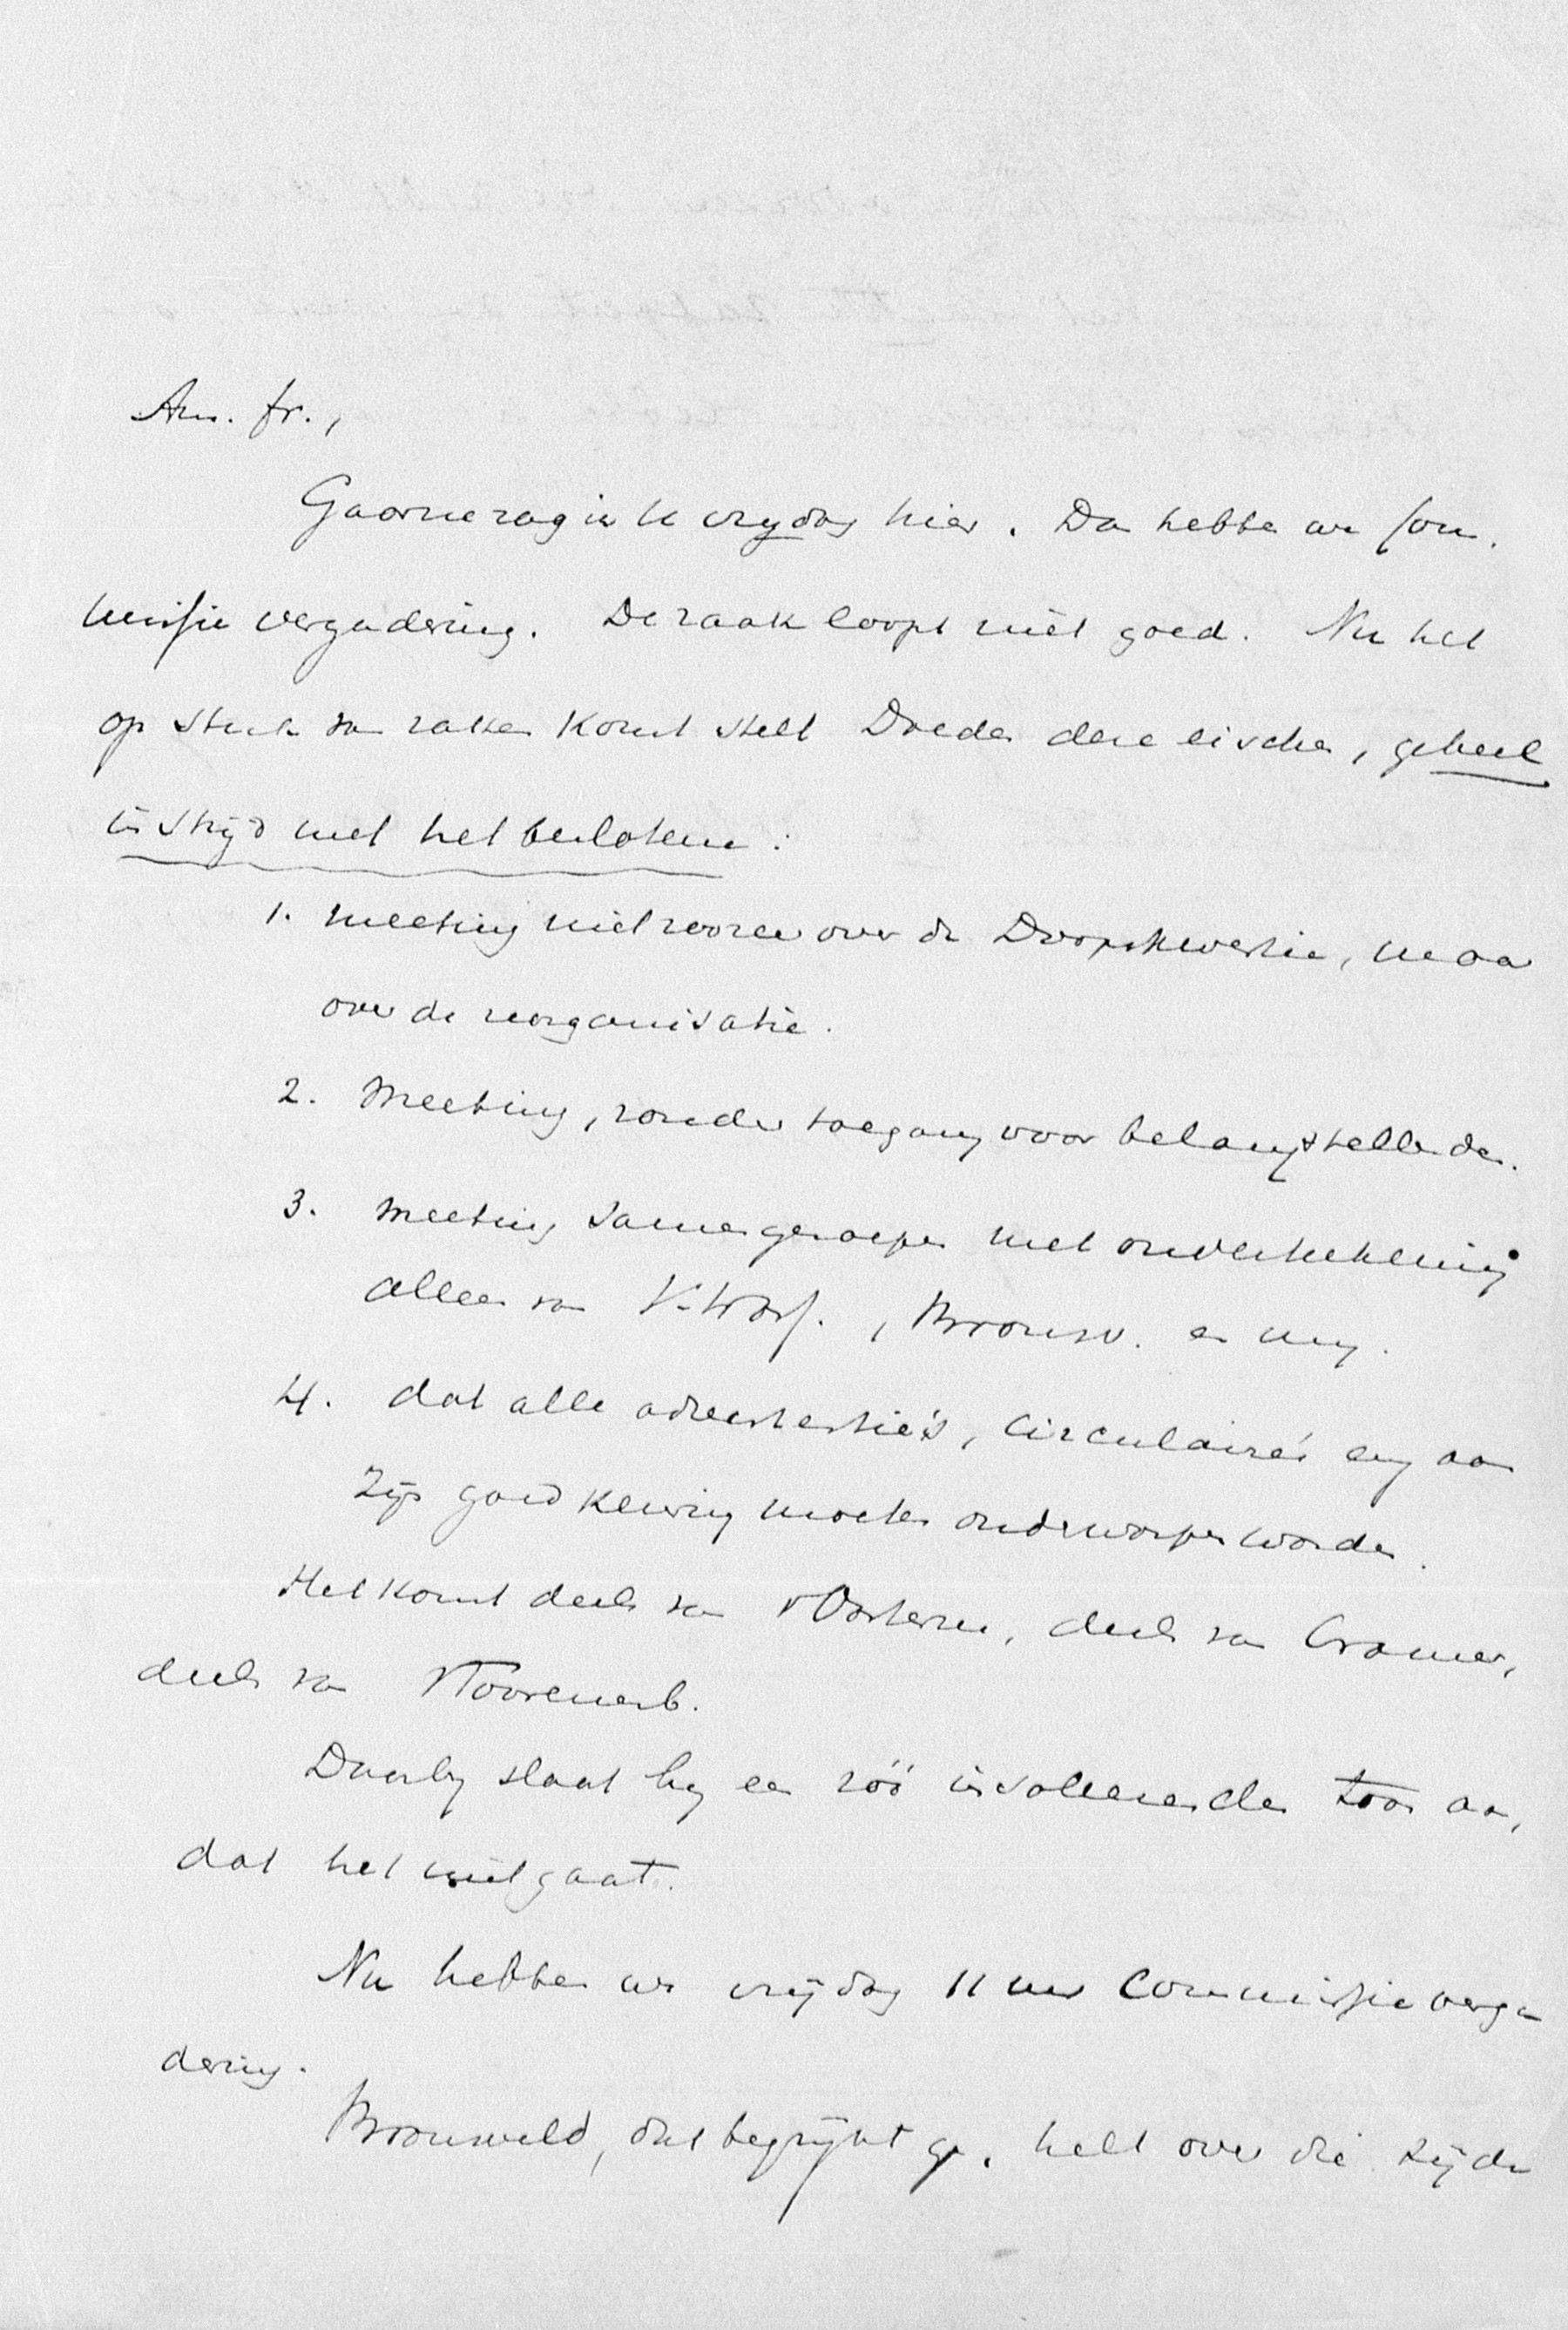 Am. fr.,
Gaarne zag ik U vrydag hier. Dan hebben we Com-
missie vergadering. De zaak loopt niet goed. Nu het
op stuk van zaken komt stelt Doedes deze eischen, geheel
in strijd met het beslotene:
1. meeting niet zoozeer over de Doopskwestie, maar
over de reorganisatie.
2. Meeting, zonder toegang voor belangstellenden.
3. Meeting samengeroepen met onderteekening
alleen van V. Rhijn, Bronsv. en my.
4. dat alle advertentie's, circulaire's enz aan
zijn goedkeuring moeten onderworpen worden.
Het komt deels van v Oosterzee, deels van Cramer,
deels van v Toorenenb.
Daarby slaat hy een zóó insolenten toon aan,
dat het niet gaat.
Nu hebben we vrijdag 11 uur Commissieverga
dering.
Bronsveld, dat begrijpt ge, helt over die zijde